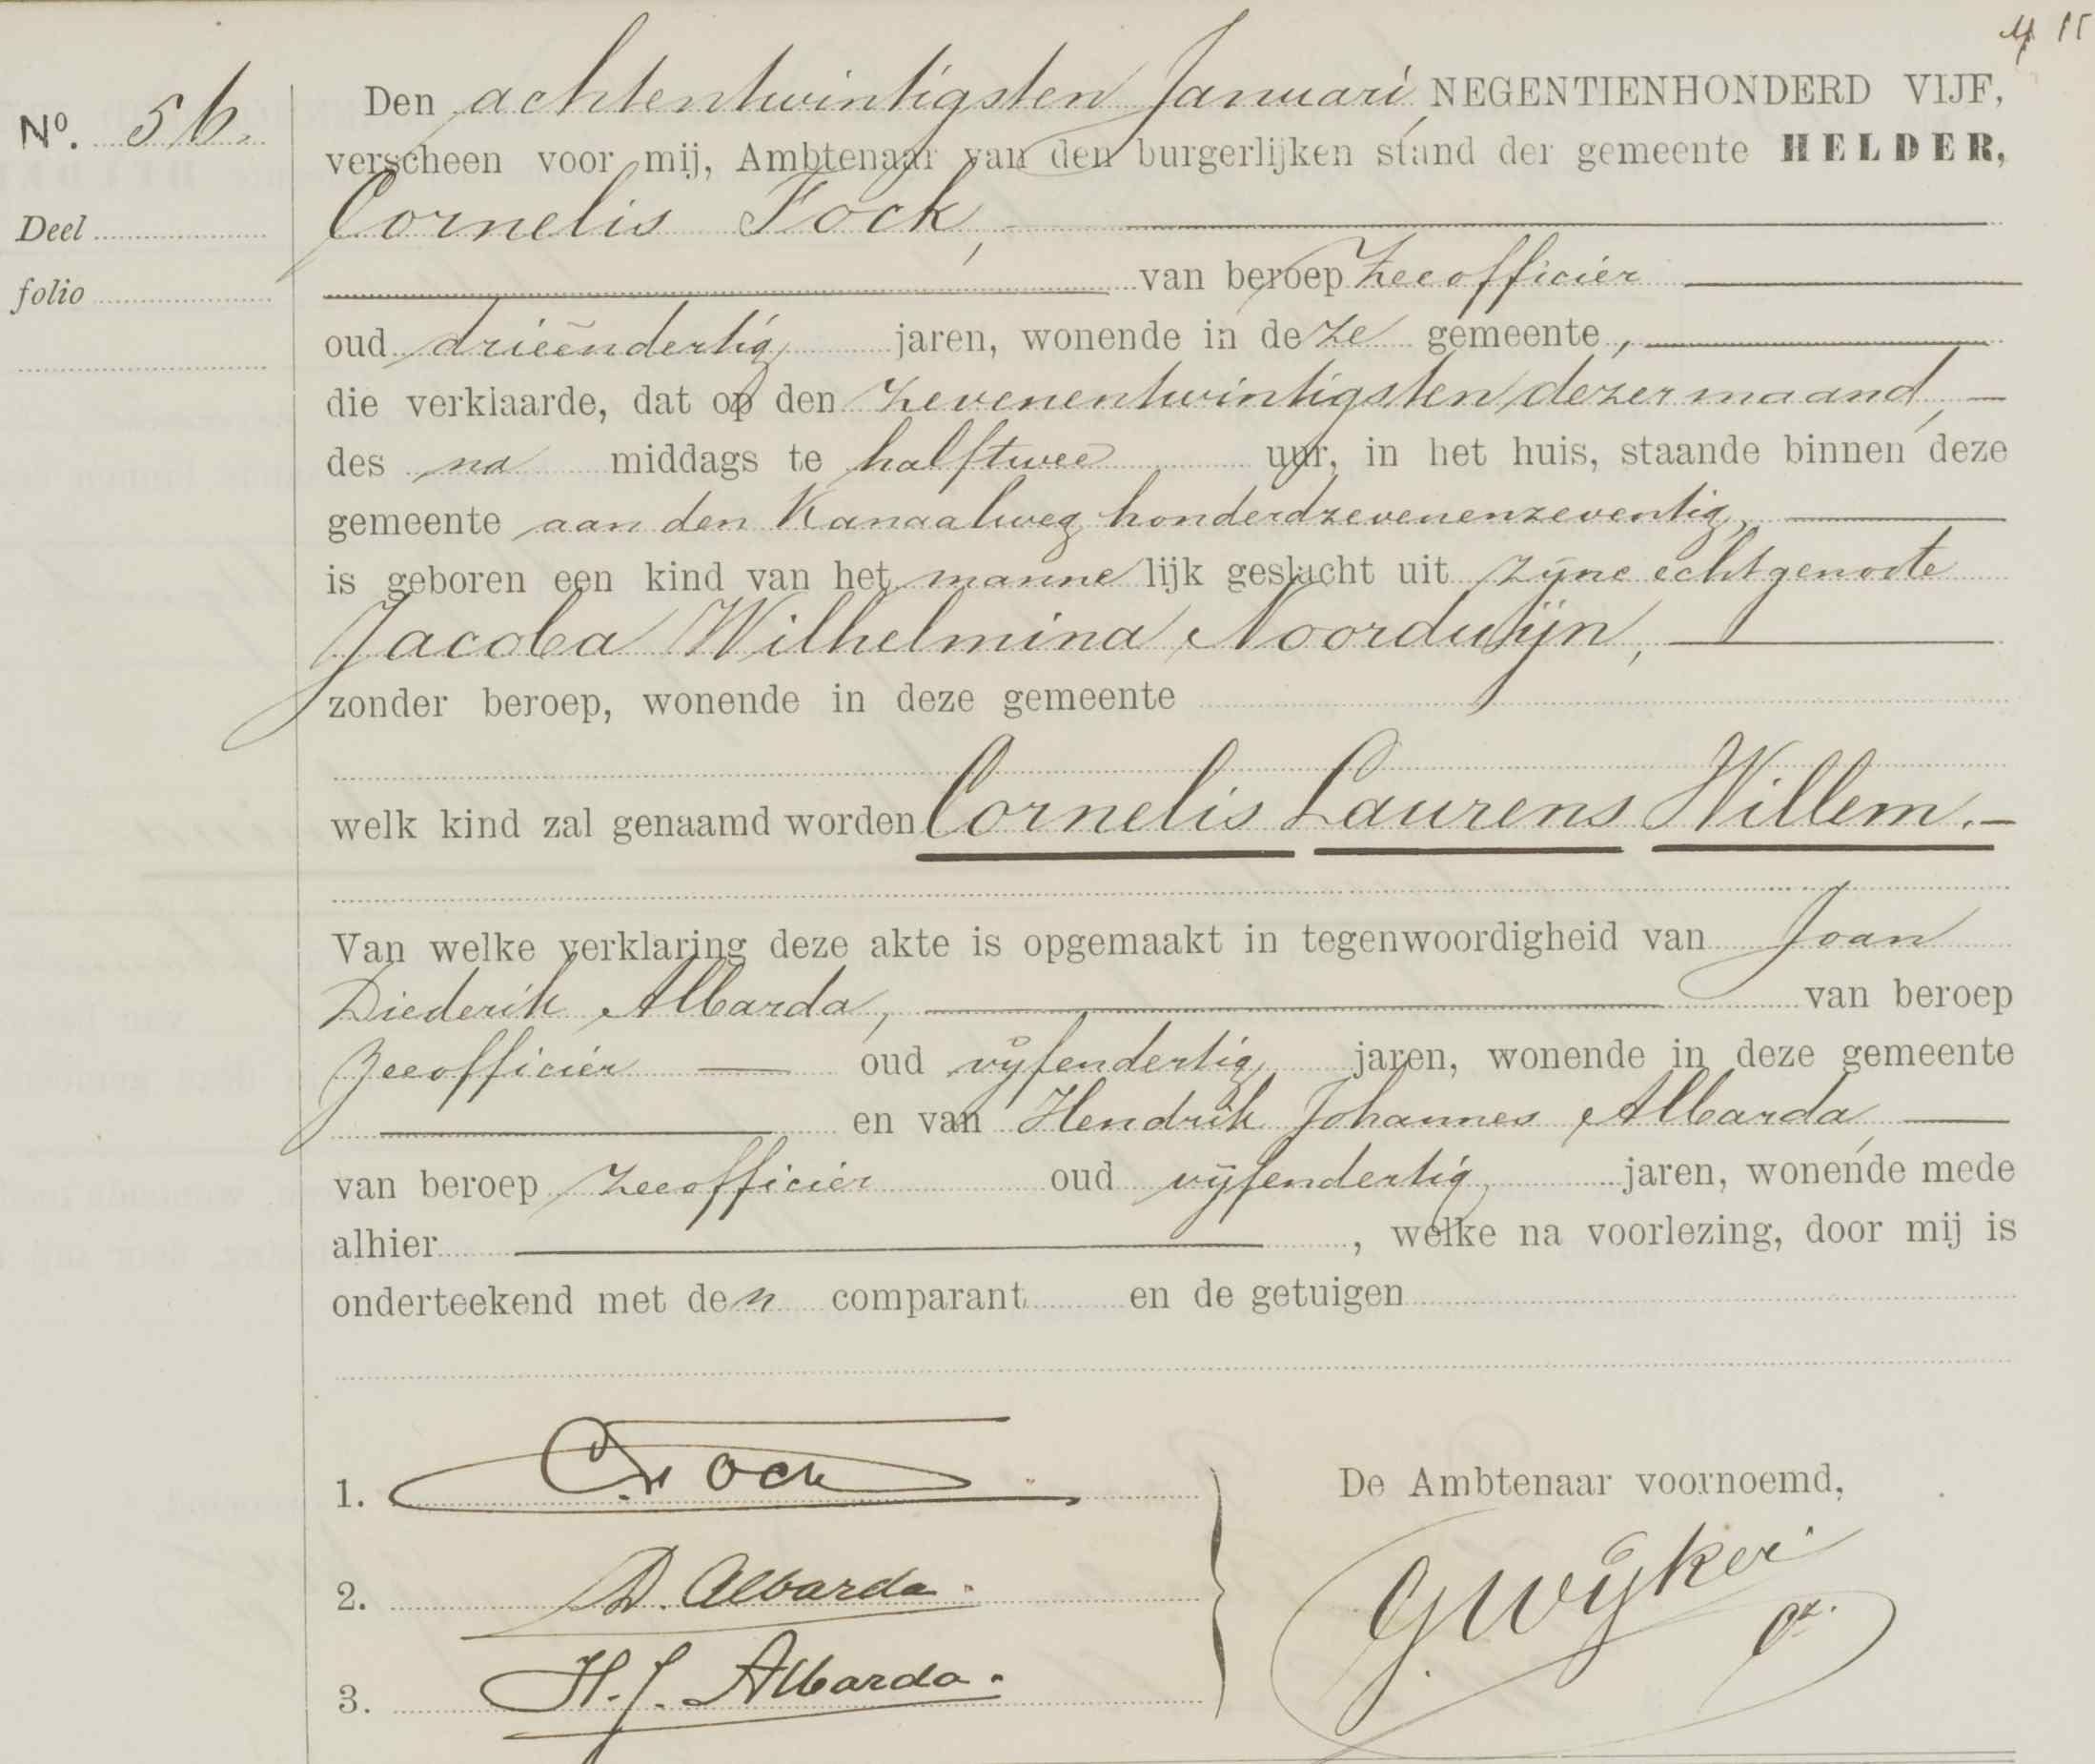 Nº. 56.
Deel
folio
Den achtentwintigsten Januari, NEGENTIENHONDERD VIJF,
verscheen voor mij, Ambtenaar van den burgerlijken stand der gemeente HELDER,
Cornelis Fock,
van beroep Zeeofficier
oud drieëndertig jaren, wonende in deze gemeente,
die verklaarde, dat op den zevenentwintigsten dezer maand,
des na middags te halftwee uur, in het huis, staande binnen deze
gemeente aan den Kanaalweg honderdzevenenzeventig,
is geboren een kind van het mannelijk geslacht uit zijne echtgenoote
Jacoba Wilhelmina Noorduijn,
zonder beroep, wonende in deze gemeente
welk kind zal genaamd worden Cornelis Laurens Willem.
Van welke verklaring deze akte is opgemaakt in tegenwoordigheid van Joan
Diederik Albarda, van beroep
Zeeofficier oud vijfendertig jaren, wonende in deze gemeente
en van Hendrik Johannes Albarda,
van beroep Zeeofficier oud vijfendertig jaren, wonende mede
alhier, welke na voorlezing, door mij is
onderteekend met den comparant en de getuigen
1. C Fock
2. D. Albarda.
3. H. J. Albarda.
De Ambtenaar voornoemd,